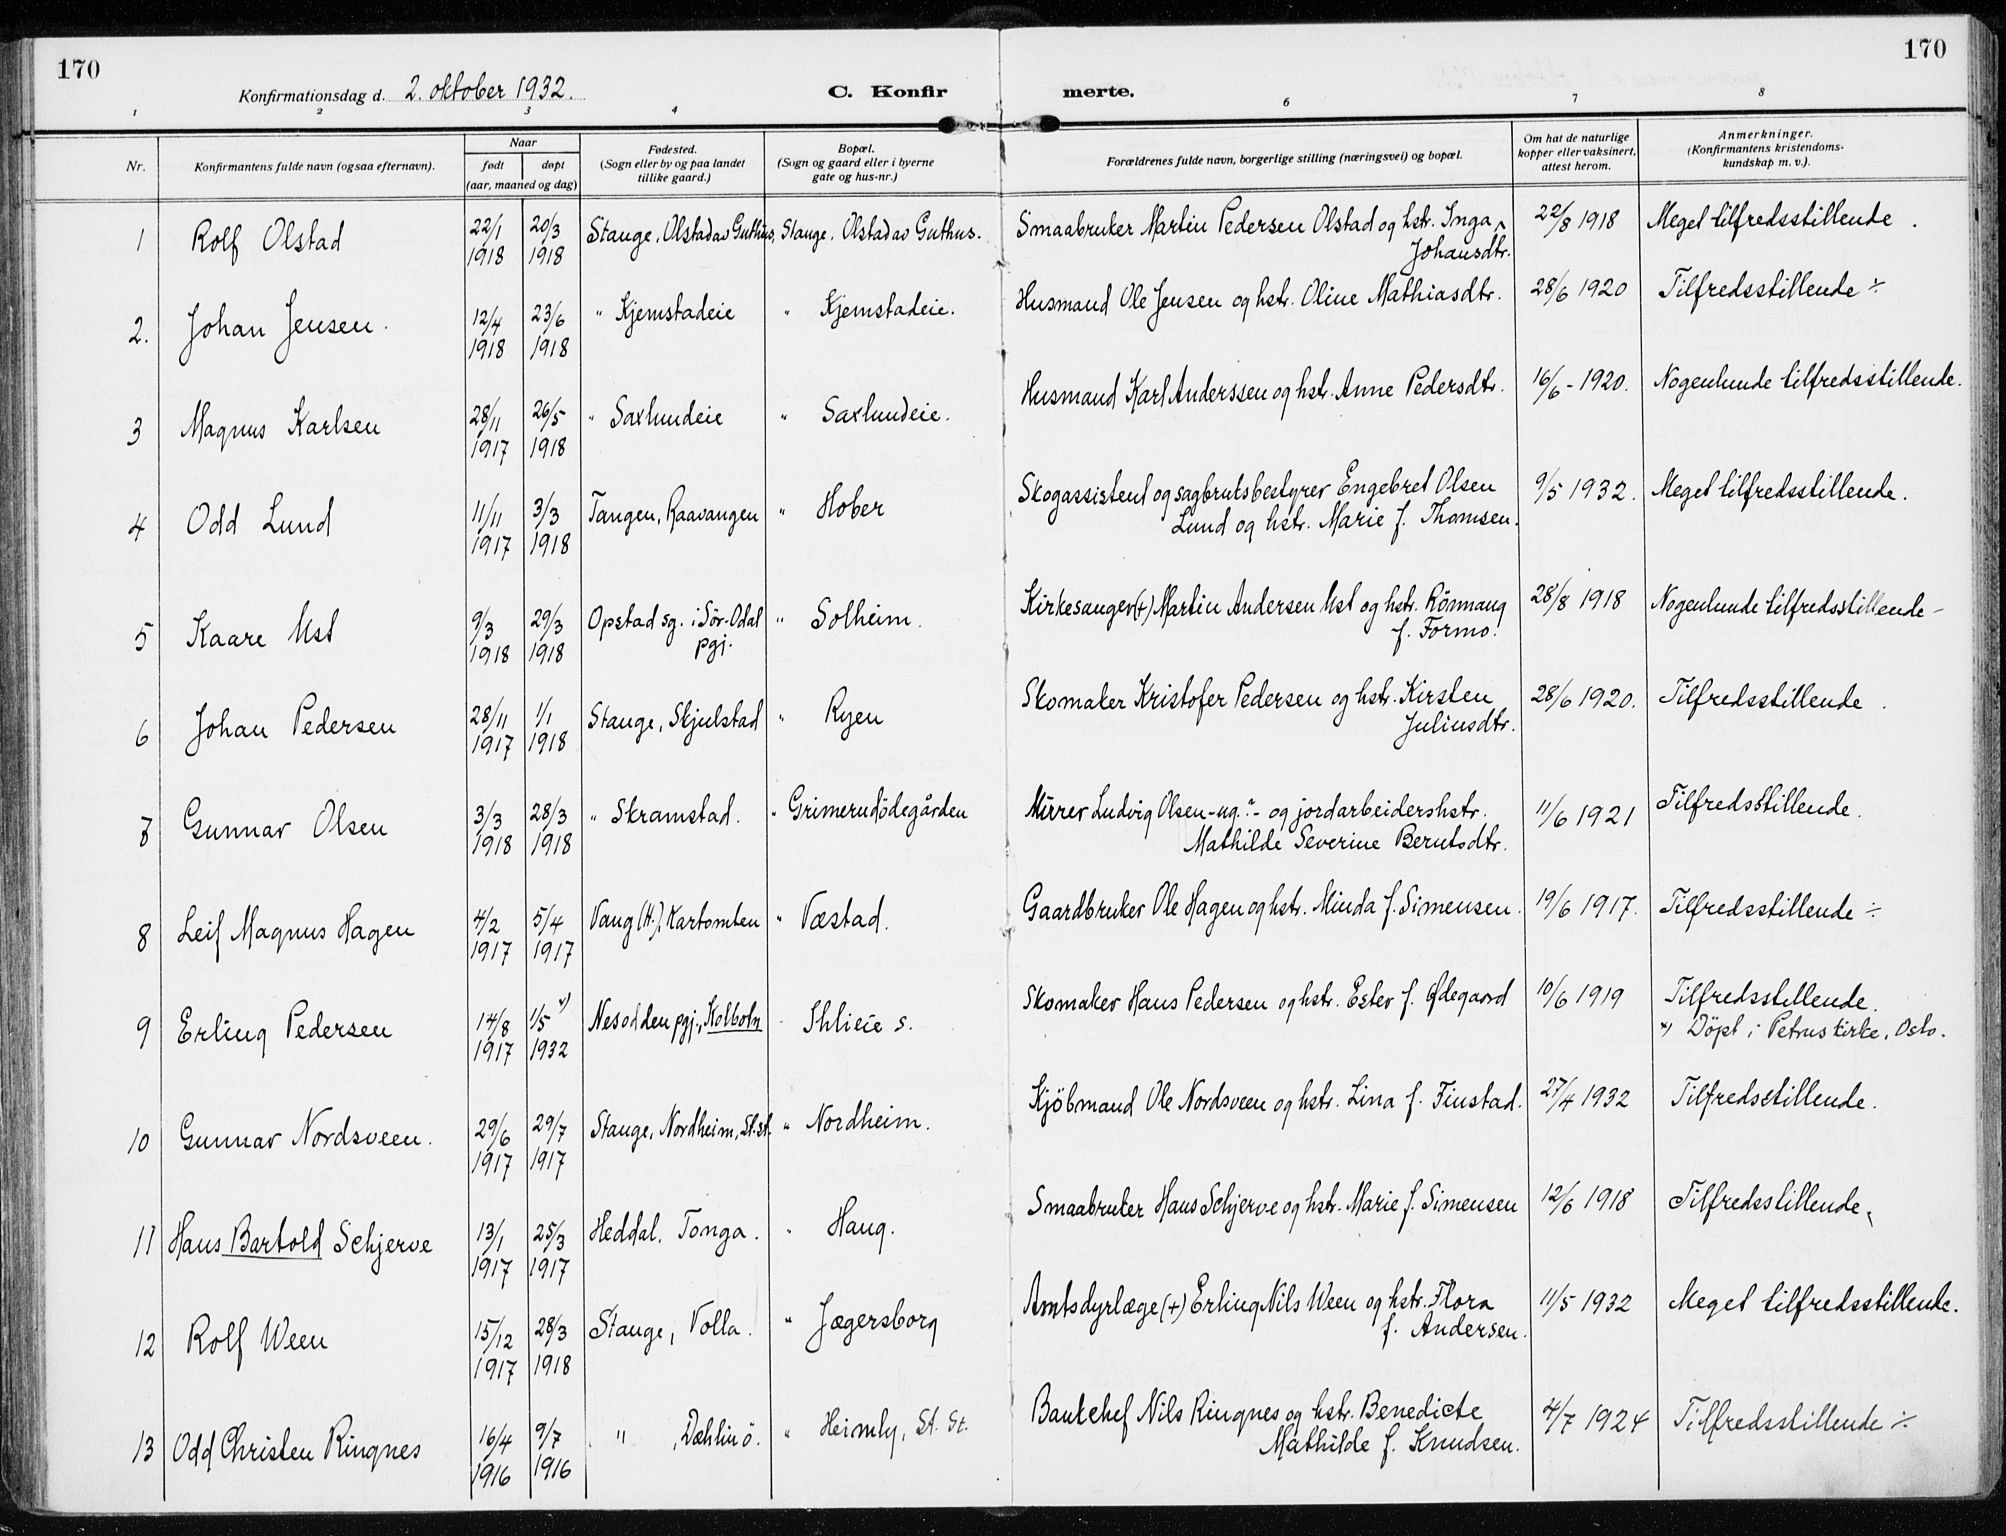 170
170
Konfirmationsdag d. 2. oktober 1932.
C. Konfirmerte.
1 2 3 4 6 7 8
Nr.
Konfirmantens fulde navn (ogsaa efternavn).
Naar
født døpt
(aar, maaned og dag)
Fødested.
(Sogn eller by og paa landet
tillike gaard.)
Bopæl.
(Sogn og gaard eller i byerne
gate og hus-nr.)
Forældrenes fulde navn, borgerlige stilling (næringsvei) og bopæl.
Om hat de naturlige
kopper eller vaksinert,
attest herom.
Anmerkninger.
(Konfirmantens kristendoms-
kundskap m. v.).
1 Rolf Olstad 22/1 1918 20/3 1918 Stange, Olstad av Guthus, Stange, Olstad av Guthus. Smaabruker Martin Pedersen Olstad og hstr. Inga 22/8 1918 Meget tilfredsstillende.
Johansdtr.
2. Johan Jensen. 12/4 1918 23/6 1918 " Kjemstadeie " Kjemstadeie. Husmand Ole Jensen og hstr. Oline Mathiasdtr. 28/6 1920 Tilfredsstillende ÷
3 Magnus Karlsen 28/11 1917 26/5 1918 " Saxlundeie " Saxlundeie. Husmand Karl Anderssen og hstr. Anne Pedersdtr. 16/6 - 1920. Nogenlunde tilfredsstillende.
4 Odd Lund 11/11 1917 3/3 1918 Tangen, Raavangen " Hober Skogassistent og sagbruksbestyrer Engebret Olsen 9/5 1932. Meget tilfredsstillende.
Lund og hstr. Marie f. Thomsen.
5 Kaare Ust 9/3 1918 29/3 1918 Opstad sg. i Sör-Odal " Solheim. Kirkesanger (+) Martin Andersen Ust og hstr. Rönnaug 28/8 1918 Nogenlunde tilfredsstillende -
pgj. f. Formo.
6 Johan Pedersen 28/11 1917 1/1 1918 Stange, Skjulstad " Ryen Skomaker Kristofer Pedersen og hstr. Kirsten 28/6 1920. Tilfredsstillende.
Juliusdtr.
7 Gunnar Olsen 3/3 1918 28/3 1918 " Skramstad. " Grimerudödegården Murer Ludvig Olsen - ug. - og jordarbeiderhstr. 11/6 1921 Tilfredsstillende.
Mathilde Severine Berntsdtr.
8 Leif Magnus Hagen 4/2 1917 5/4 1917 Vang (H.), Kartomten " Væstad. Gaardbruker Ole Hagen og hstr. Minda f. Simensen. 19/6 1917. Tilfredsstillende ÷
9 Erling Pedersen 14/8 1917 1/5 x) 1932 Nesodden pgj., Kolbotn s. Skomaker Hans Pedersen og hstr. Ester f. Ødegaard 10/6 1919 Tilfredsstillende.
x) Döpt i Petruskirke, Oslo.
10 Gunnar Nordsveen. 29/6 1917 29/7 1917 Stange, Nordheim, St. st. " Nordheim. Kjöbmand Ole Nordsveen og hstr. Lina f. Finstad. 27/4 1932 Tilfredsstillende.
11 Hans Bartold Schjerve 13/1 1917 25/3 1917 Heddal, Tonga. " Haug. Smaabruker Hans Schjerve og hstr. Marie f. Simensen 12/6 1918 Tilfredsstillende,
12 Rolf Ween 15/12 1917 28/3 1918 Stange, Volla. " Jægersborg Amtsdyrlæge (+) Erling Nils Ween og hstr. Flora 11/5 1932 Meget tilfredsstillende.
f. Andersen.
13 Odd Christen Ringnes 16/4 1916 9/7 1916 " , Dæhlin ö. " Heimly, St. St. Bankchef Nils Ringnes og hstr. Benedicte 4/7 1924 Tilfredsstillende ÷
Mathilde f. Knudsen.